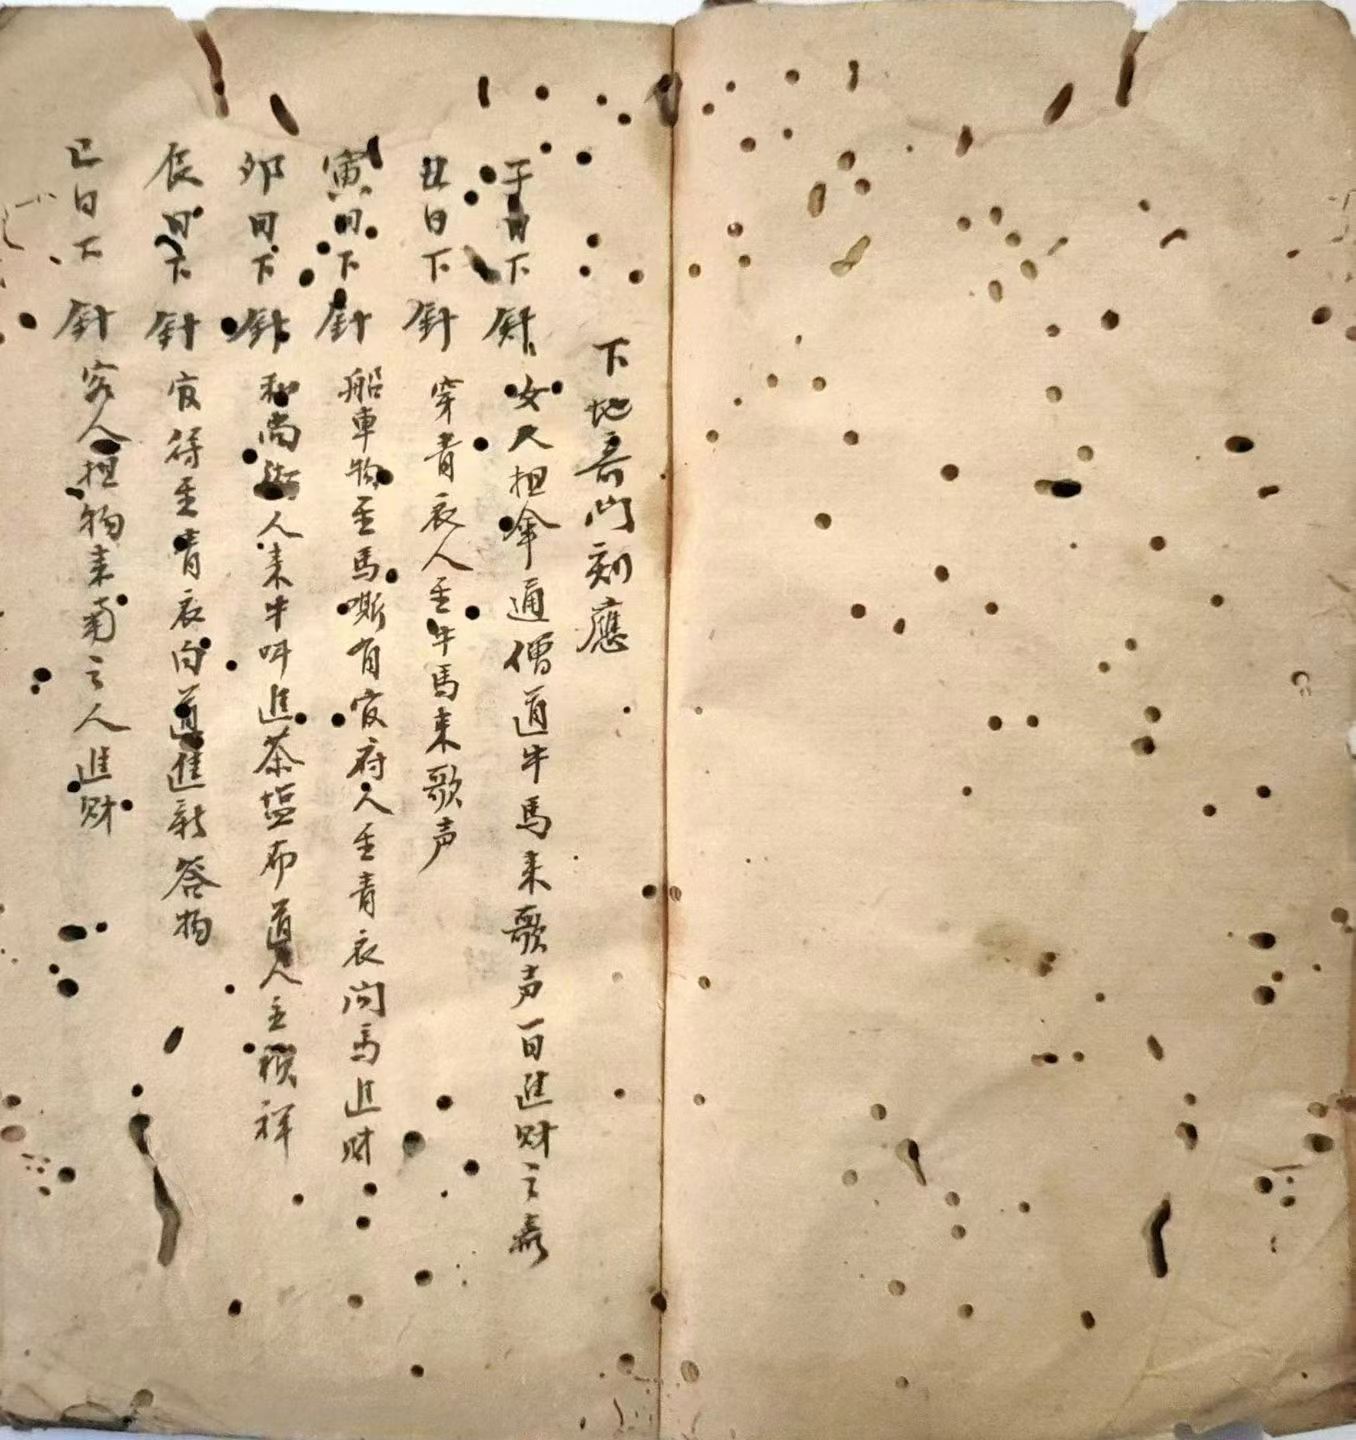 下地奇门刻應
子日下針女人担傘通僧道牛馬来歌声一日進财之喜
丑日下針穿青衣人至牛馬来歌声
寅日下針船車物至馬嘶有官府人至青衣问馬進财
卯日下針和尚人来牛叫進茶塩布道人主祯祥
辰日下針官符至青衣白道進新答物
巳日下針客人担物来南之人進财